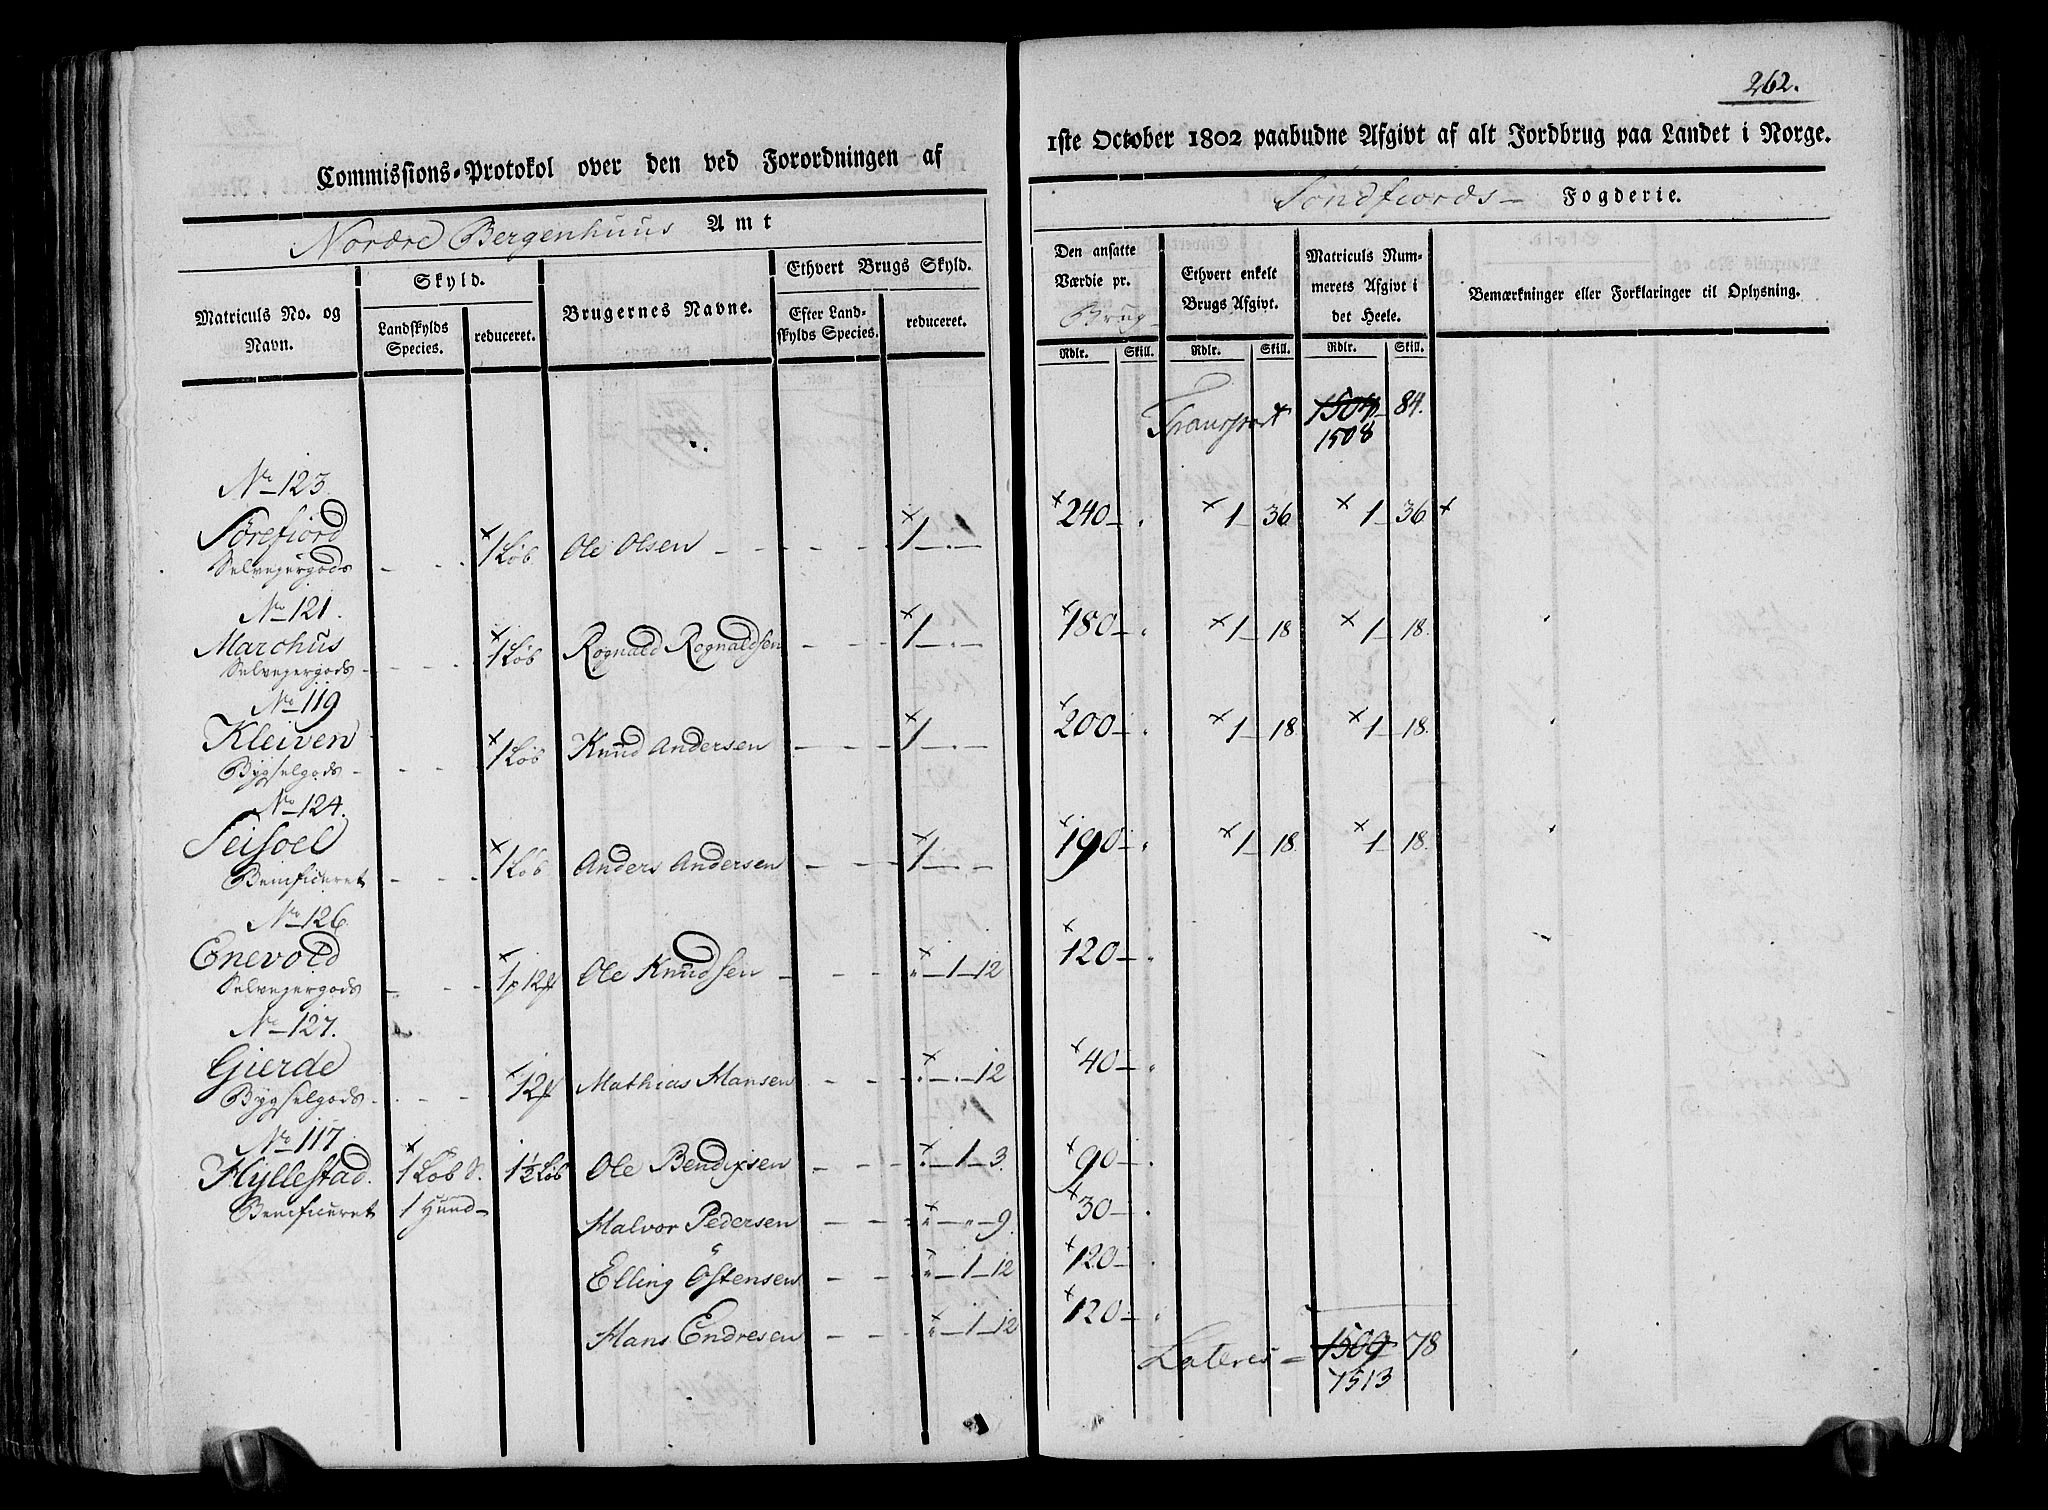 262.
Commissions-Protokol over den ved Forordningen af
1ste October 1802 paabudne Afgivt af alt Jordbrug paa Landet i Norge.
Nordre Bergenhuus Amt
Söndfiords Fogderie.
Matriculs No. og Navn.
Skyld.
Landskylds Species.
reduceret.
Brugernes Navne.
Ethvert Brugs Skyld.
Efter Landskylds Species.
reduceret.
Den ansatte Værdie pr. Brug
Ethvert enkelt Brugs Afgivt.
Matriculs Nummerets Afgivt i det Heele.
Bemærkninger eller Forklaringer til Oplysning.
Rdlr. Skill. Rdlr. Skill. Rdlr. Skill.
Transport 1504 – 84.
1508
No 123
Sørefiord × 1 Løb Ole Olsen × 1 – . – × 240 – . × 1 – 36 × 1 – 36 ×
Selvejergods
No 121.
Marchus × 1 Løb Rognald Rognaldsen × 1 – . – × 180 – . × 1 – 18 × 1 – 18.
Selvejergods
No 119
Kleiven × 1 Løb Knud Andersen × 1 – . – × 200 – . × 1 – 18 × 1 – 18.
Bygselgods
No 124.
Seisoel × 1 Løb Anders Andersen × 1 – . – × 190 – . × 1 – 18 × 1 – 18.
Benificeret
No 126
Enevold × 1 p 12 Ole Knudsen × " – 1 – 12 × 120 – "
Selvejergods
No 127.
Gierde × 12 Mathias Hansen × . – . – 12 × 40 – "
Bygselgods
No 117
Hyllestad. × 1 Løb S. 1½ Løb Ole Bendixsen × . – 1 – 3. × 90 – .
Benificeret 1 Hund Halvor Pedersen × " – " – 9. × 30 – .
Elling Östensen " – 1 – 12 × 120 – .
Hans Endresen × " – 1 – 12 × 120 – "
Lateres = 1509 78
1513